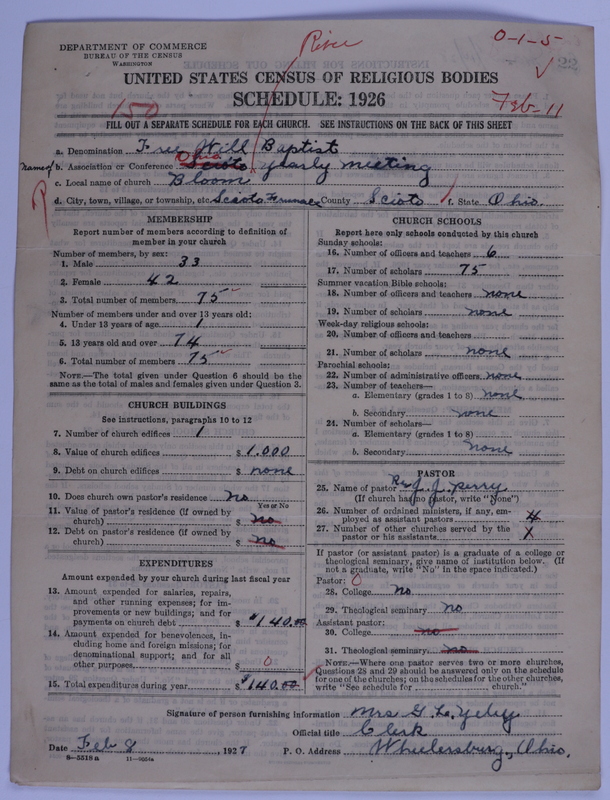 DEPARTMENT OF COMMERCE
BUREAU OF THE CENSUS
WASHINGTON
Rice
0-1-5
UNITED STATES CENSUS OF RELIGIOUS BODIES
SCHEDULE: 1926
150
Feb-11
FILL OUT A SEPARATE SCHEDULE FOR EACH CHURCH. SEE INSTRUCTIONS ON THE BACK OF THIS SHEET
a. Denomination Free Will Baptist
name of b. Association or Conference Scioto Ohio yearly meeting
c. Local name of church Bloom
d. City, town, village, or township, etc. Scioto Furnace County Scioto f. State Ohio
MEMBERSHIP
Report number of members according to definition of member in your church
Number of members, by sex:
1. Male 33
2. Female 42
3. Total number of members 75
Number of members under and over 13 years old:
4. Under 13 years of age 1
5. 13 years old and over 74
6. Total number of members 75
NOTE.—The total given under Question 6 should be the same as the total of males and females given under Question 3.
CHURCH BUILDINGS
See instructions, paragraphs 10 to 12
7. Number of church edifices 1
8. Value of church edifices $ 1,000
9. Debt on church edifices $ none
10. Does church own pastor's residence no
Yes or No
11. Value of pastor's residence (if owned by church) $ no
12. Debt on pastor's residence (if owned by church) $ no
EXPENDITURES
Amount expended by your church during last fiscal year
13. Amount expended for salaries, repairs, and other running expenses; for improvements or new buildings; and for payments on church debt $ $140.00
14. Amount expended for benevolences, including home and foreign missions; for denominational support; and for all other purposes $ 0
15. Total expenditures during year $ $140.00
CHURCH SCHOOLS
Report here only schools conducted by this church
Sunday schools:
16. Number of officers and teachers 6
17. Number of scholars 75
Summer vacation Bible schools:
18. Number of officers and teachers none
19. Number of scholars none
Week-day religious schools:
20. Number of officers and teachers
21. Number of scholars none
Parochial schools:
22. Number of administrative officers none
23. Number of teachers—
a. Elementary (grades 1 to 8) none
b. Secondary none
24. Number of scholars—
a. Elementary (grades 1 to 8)
b. Secondary none
PASTOR
25. Name of pastor Rev J. J. Perry
(If church has no pastor, write "None")
26. Number of ordained ministers, if any, employed as assistant pastors
27. Number of other churches served by the pastor or his assistants
If pastor (or assistant pastor) is a graduate of a college or theological seminary, give name of institution below. (If not a graduate, write "No" in the space indicated.)
Pastor: 0
28. College no
29. Theological seminary no
Assistant pastor:
30. College no
31. Theological seminary no
NOTE.—Where one pastor serves two or more churches, Questions 28 and 29 should be answered only on the schedule for one of the churches; on the schedules for the other churches, write "See schedule for ........ church."
Signature of person furnishing information Mrs G. L. Yeley
Official title Clerk
Date Feb 8 1927 P. O. Address Wheelersburg, Ohio.
8-5518a